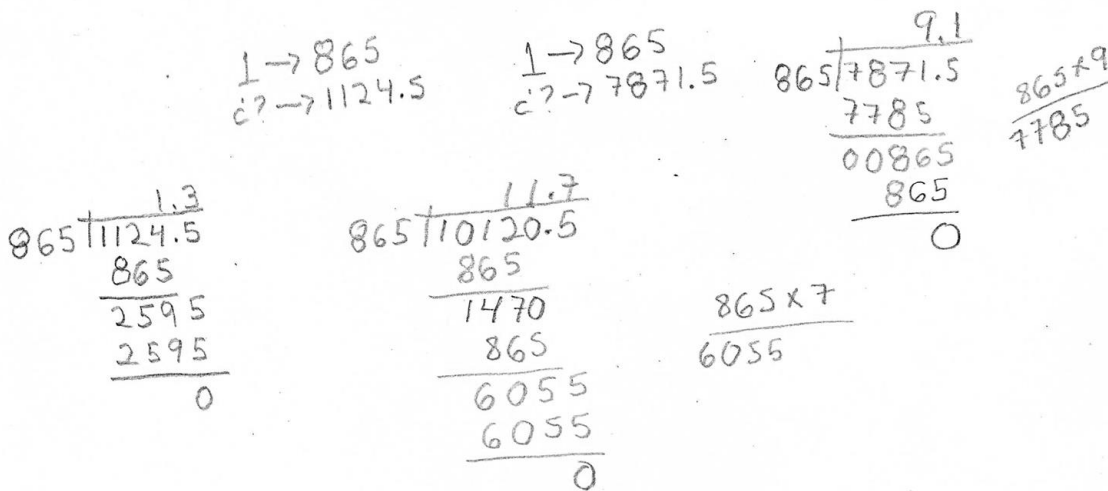 1 → 865
¿? → 1124.5
1 → 865
¿? → 7871.5
9.1
865 7871.5
7785
00865
865
0
865 x 9
7785
1.3
865 1124.5
865
2595
2595
0
11.7
865 10120.5
865
1470
865
6055
6055
0
865 x 7
6055